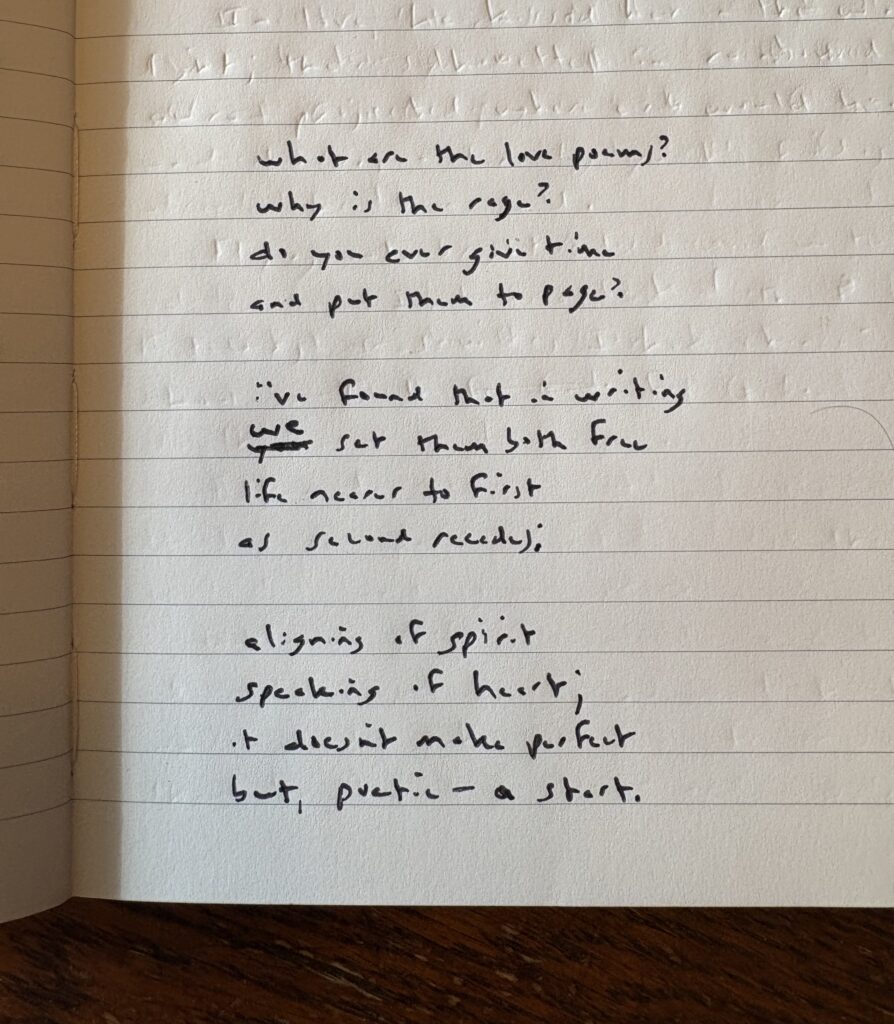 what are the love poems?
why is the rage?
do you ever give time
and put them to page?
i've found that in writing
we set them both free
life nearer to first
as second recedes;
aligning of spirit
speaking of heart;
it doesn't make perfect
but, poetic – a start.